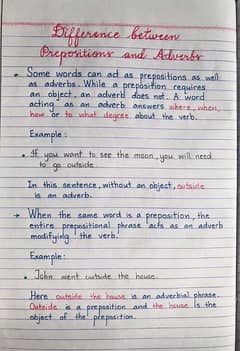 Difference between
Prepositions and Adverbs
→ Some words can act as prepositions as well
as adverbs. While a preposition requires
an object, an adverb does not. A word
acting as an adverb answers where, when,
how or to what degree about the verb.
Example:
• If you want to see the moon, you will need
to go outside.
In this sentence, without an object, outside
is an adverb.
→ When the same word is a preposition, the
entire prepositional phrase acts as an adverb
modifying the verb.
Example:
• John went outside the house.
Here outside the house is an adverbial phrase.
Outside is a preposition and the house is the
object of the preposition.